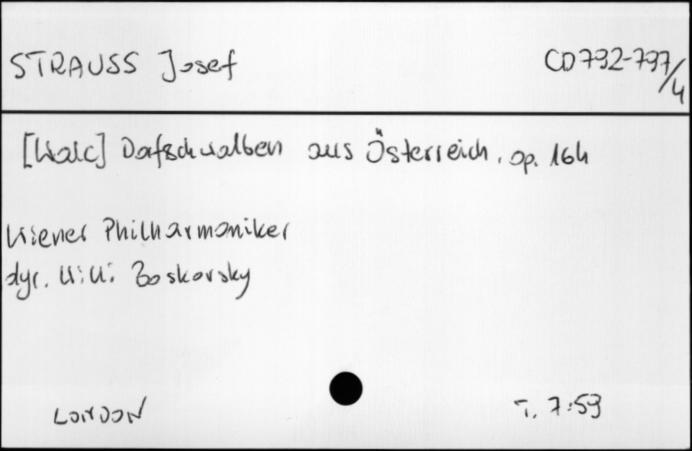 STRAUSS Josef
CD 792-797/4
[Walc] Dorfschwalben aus Österreich, op. 164
Wiener Philharmoniker
dyr. Willi Boskovsky
LONDON
T. 7:59